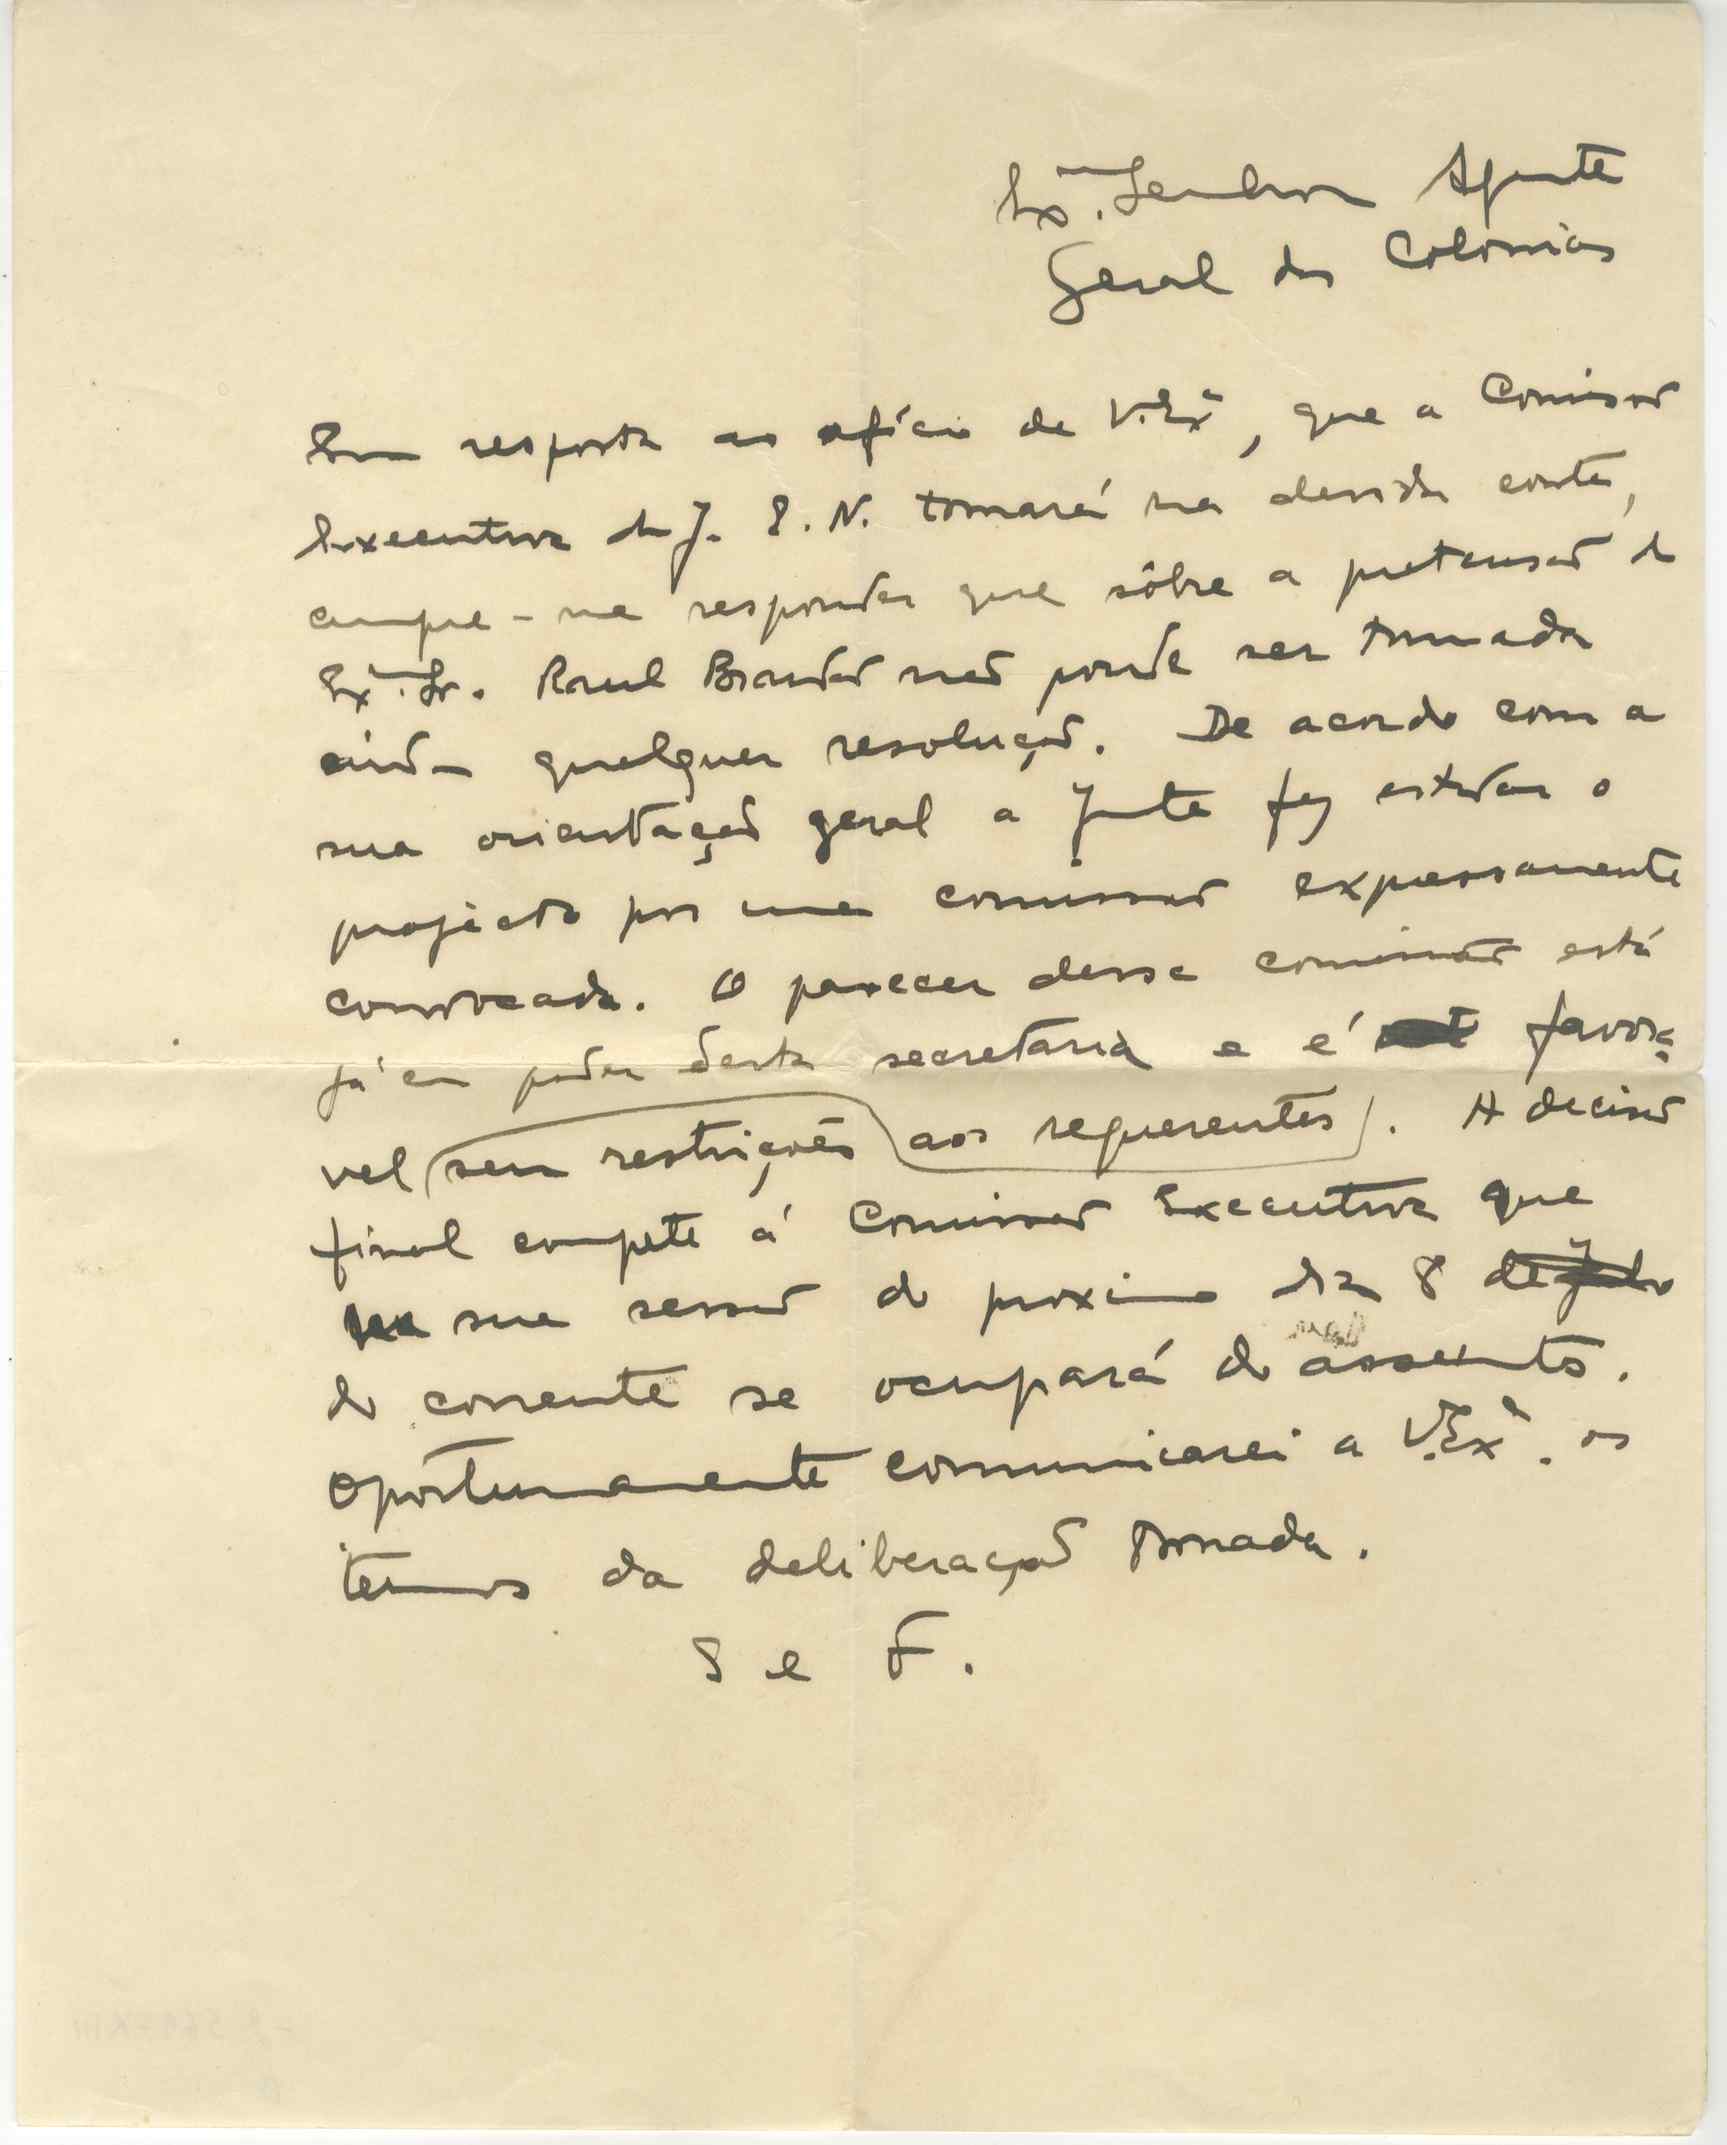 Exmo. Senhor Agente
Geral das Colonias
Em resposta ao ofício de V. Exª, que a Comissão
Executiva da J. E. N. tomará na devida conta,
cumpre-me responder que sôbre a pretensão do
Exmo. Sr. Raul Brandão não poude ser tomada
ainda qualquer resolução. De acordo com a
sua orientação geral a Junta fez estudar o
projecto por uma comissão expressamente
convocada. O parecer dessa comissão está
já em poder desta secretaria e é favora-
vel (sem restrições) aos requerentes. A decisão
final compete á Comissão Executiva que
na sua sessão do proximo dia 8 de Julho
do corrente se ocupará do assunto.
Oportunamente comunicarei a V. Exª. os
termos da deliberação tomada.
S e F.